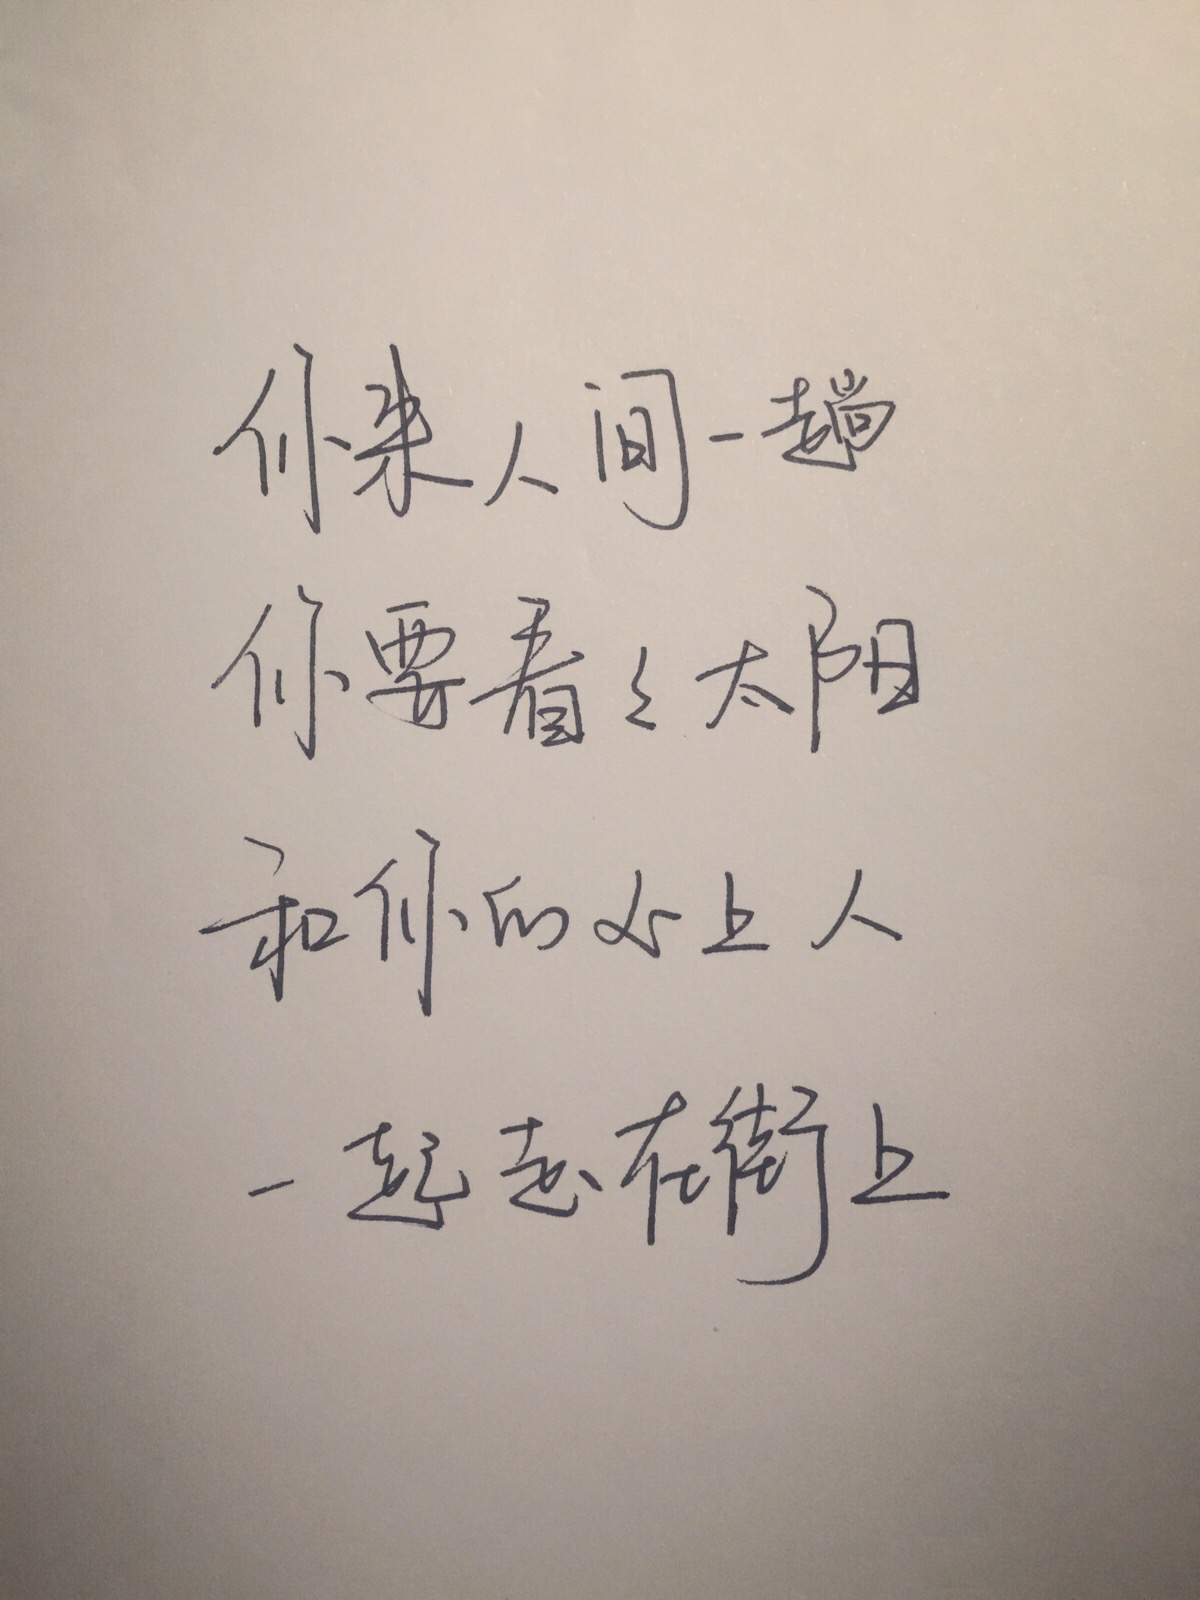 你来人间一趟
你要看看太阳
和你的心上人
一起走在街上